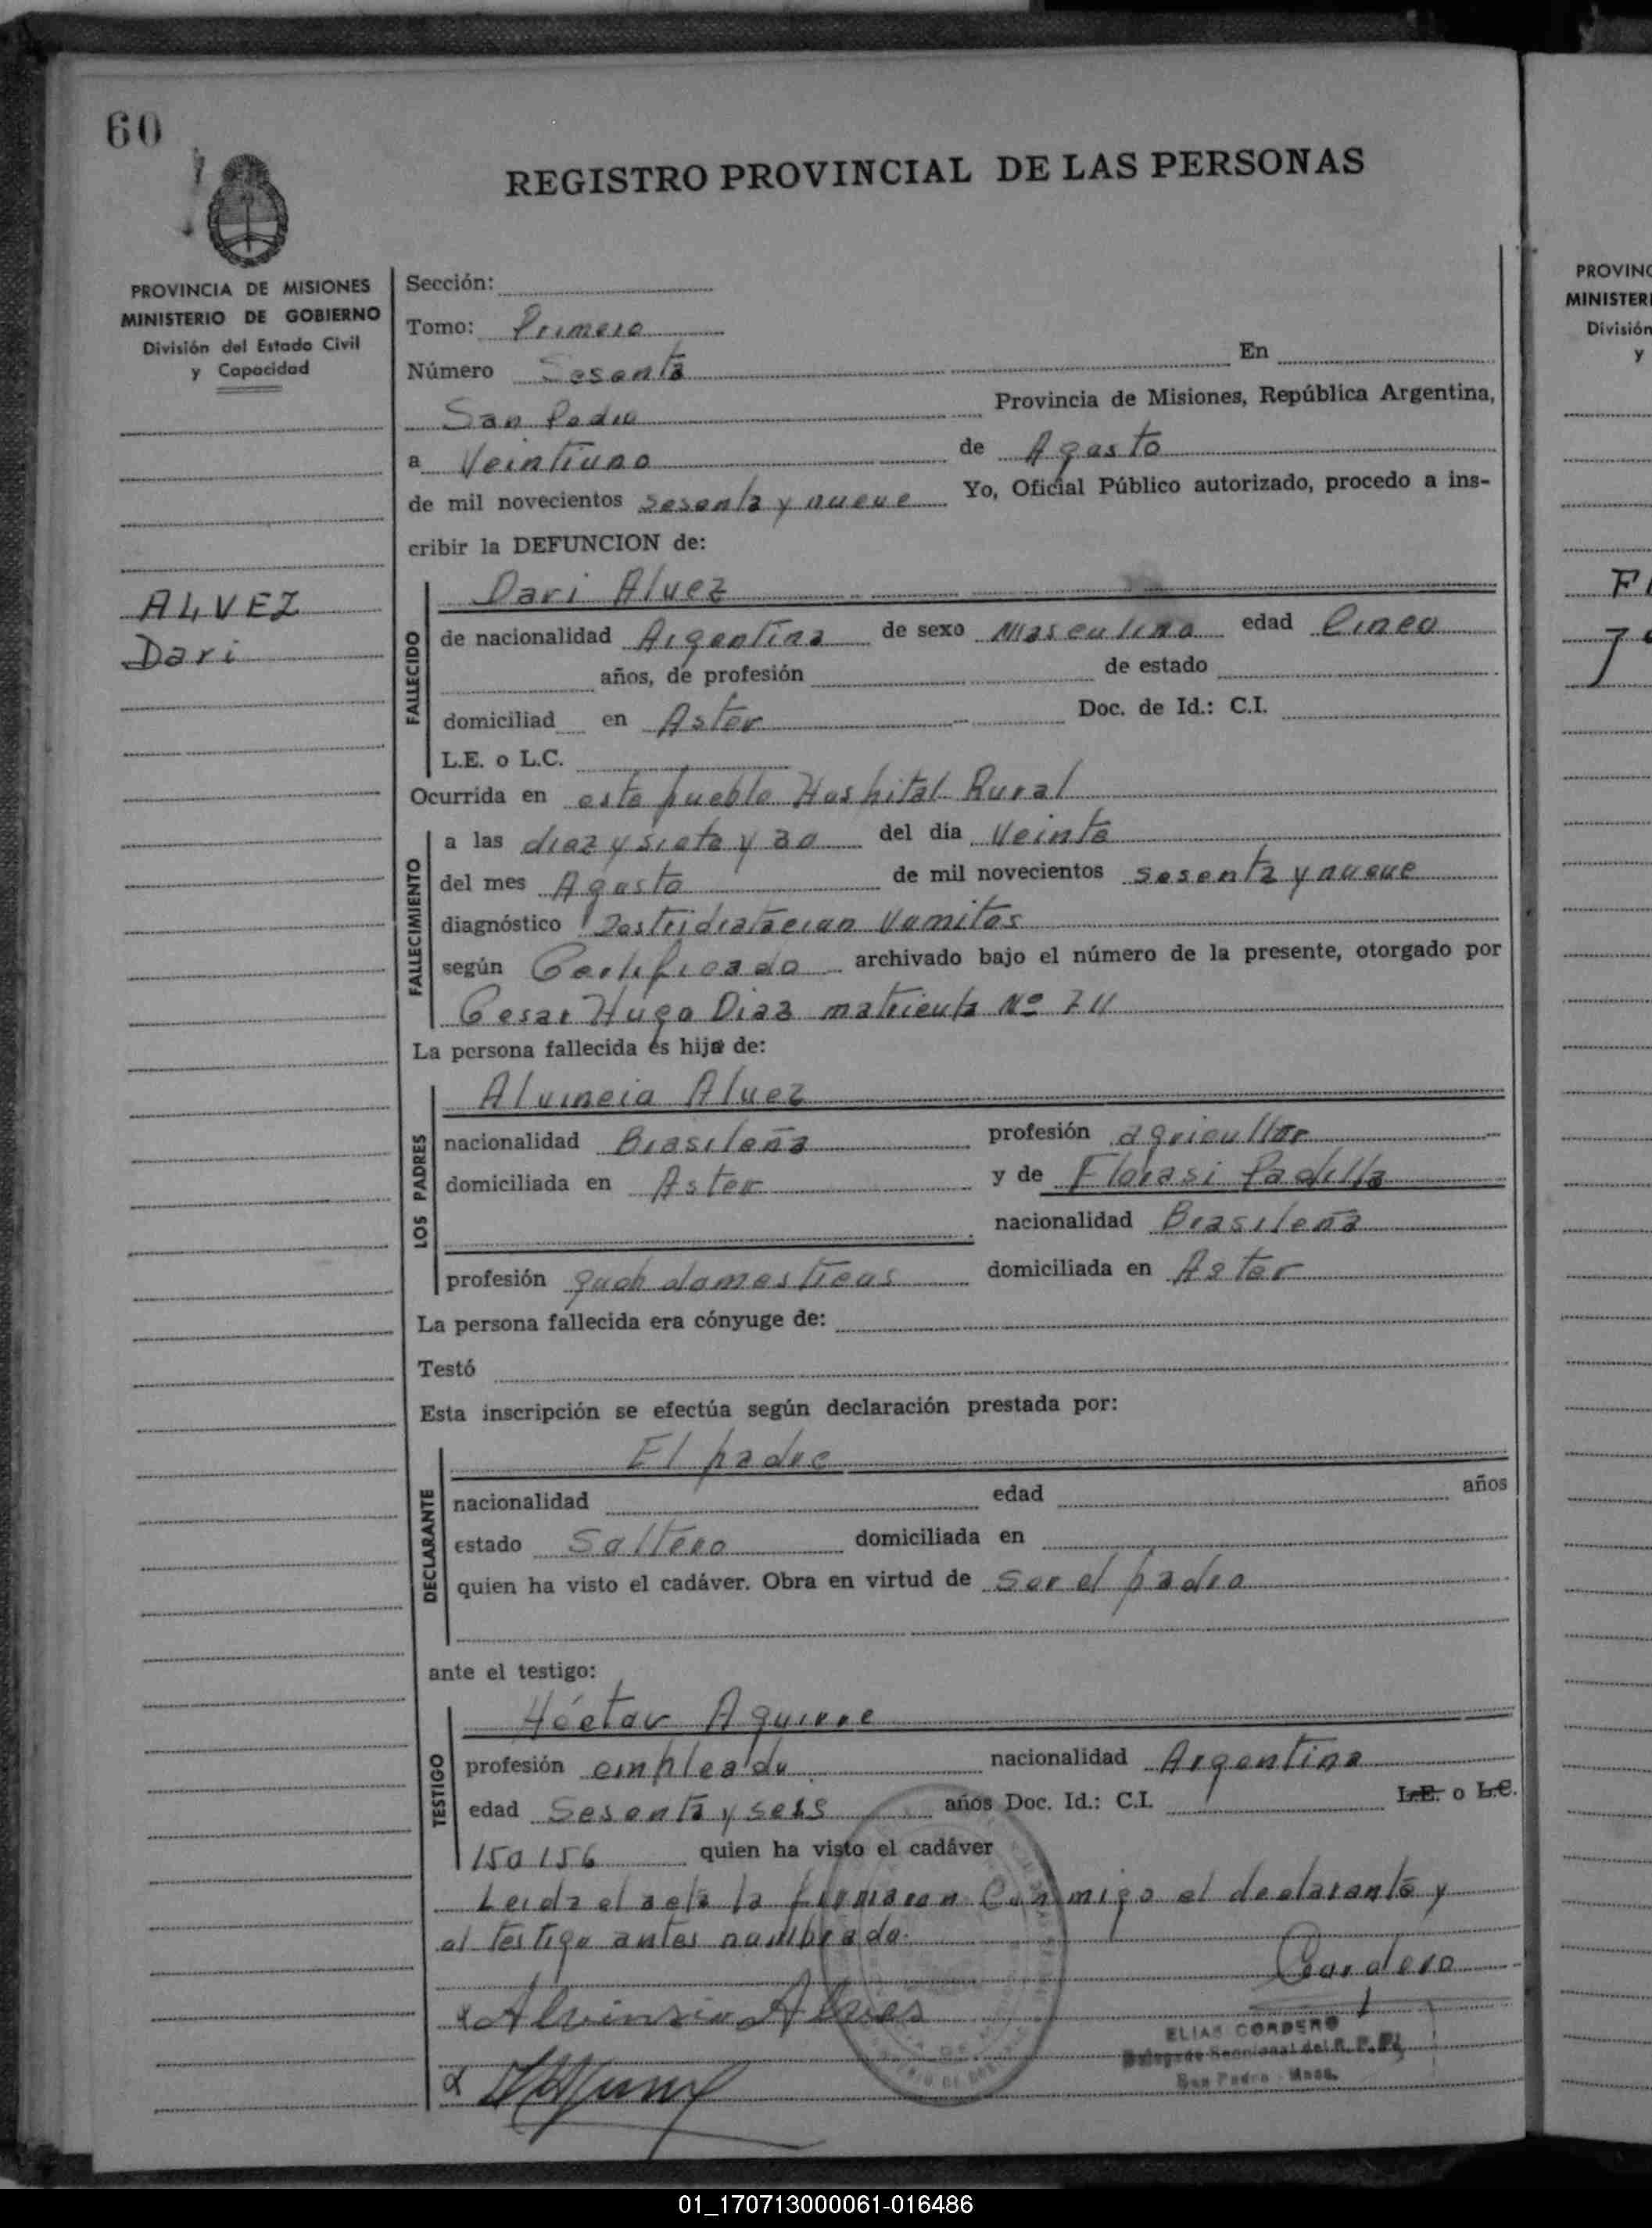 60
REGISTRO PROVINCIAL DE LAS PERSONAS
PROVINCIA DE MISIONES
MINISTERIO DE GOBIERNO
División del Estado Civil
y Capacidad
ALVEZ
Dari
Sección:
Tomo: Primero
Número Sesenta En
San Pedro Provincia de Misiones, República Argentina,
a Veintiuno de Agosto
de mil novecientos sesenta y nueve Yo, Oficial Público autorizado, procedo a ins-
cribir la DEFUNCION de:
FALLECIDO
Dari Alvez
de nacionalidad Argentina de sexo Masculino edad Cinco
años, de profesión de estado
domiciliad en Aster Doc. de Id.: C.I.
L.E. o L.C.
Ocurrida en este pueblo Hospital Rural
FALLECIMIENTO
a las diez y siete y 30 del día Veinte
del mes Agosto de mil novecientos sesenta y nueve
diagnóstico Vomitos
según Certificado archivado bajo el número de la presente, otorgado por
Cesar Hugo Diaz matricula Nº 711
La persona fallecida es hijo de:
LOS PADRES
Alvincia Alvez
nacionalidad Brasileña profesión agricultor
domiciliada en Aster y de Florasi Padilla
nacionalidad Brasileña
profesión domesticos domiciliada en Aster
La persona fallecida era cónyuge de:
Testó
Esta inscripción se efectúa según declaración prestada por:
DECLARANTE
El padre
nacionalidad edad años
estado Soltero domiciliada en
quien ha visto el cadáver. Obra en virtud de ser el padre
ante el testigo:
TESTIGO
Héctor Aguirre
profesión empleado nacionalidad Argentina
edad Sesenta y seis años Doc. Id.: C.I. L.E. o L.C.
150156 quien ha visto el cadáver
Leida el acta la firmaron Conmigo el declarante y
el testigo antes nombrado.
Cordero
x Alvinsio Alves
ELIAS CORDERO
Delegado Seccional del R. P. P.
San Pedro - Mnes.
PROVINC
MINISTERI
División
y
01_170713000061-016486